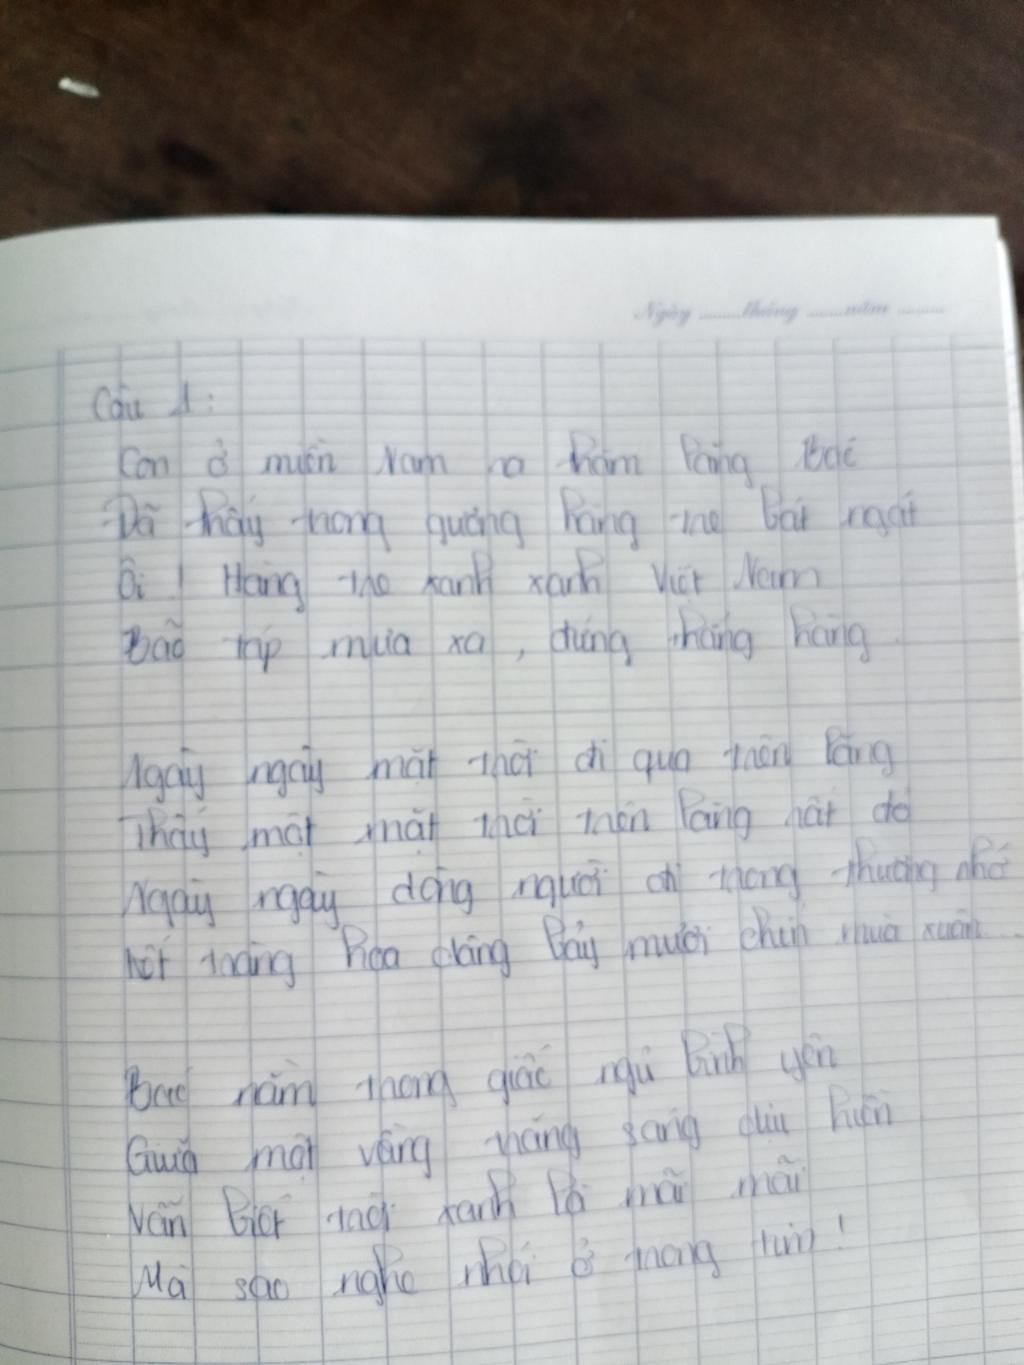 Ngày ........tháng ........năm .........
Câu 1:
Con ở miền Nam ra thăm lăng Bác
Đã thấy trong gương hàng tre bát ngát
Ôi ! Hàng tre xanh xanh Việt Nam
Bão táp mưa xa, đứng thẳng hàng.
Ngày ngày mặt trời đi qua trên lăng
Thấy một mặt trời trên lăng rất đỏ
Ngày ngày dòng người đi trong thương nhớ
Kết tràng hoa dâng bảy mươi chín mùa xuân...
Bác nằm trong giấc ngủ bình yên
Giữa một vầng trăng sáng dịu hiền
Vẫn biết trời xanh là mãi mãi
Mà sao nghe nhói ở trong tim !